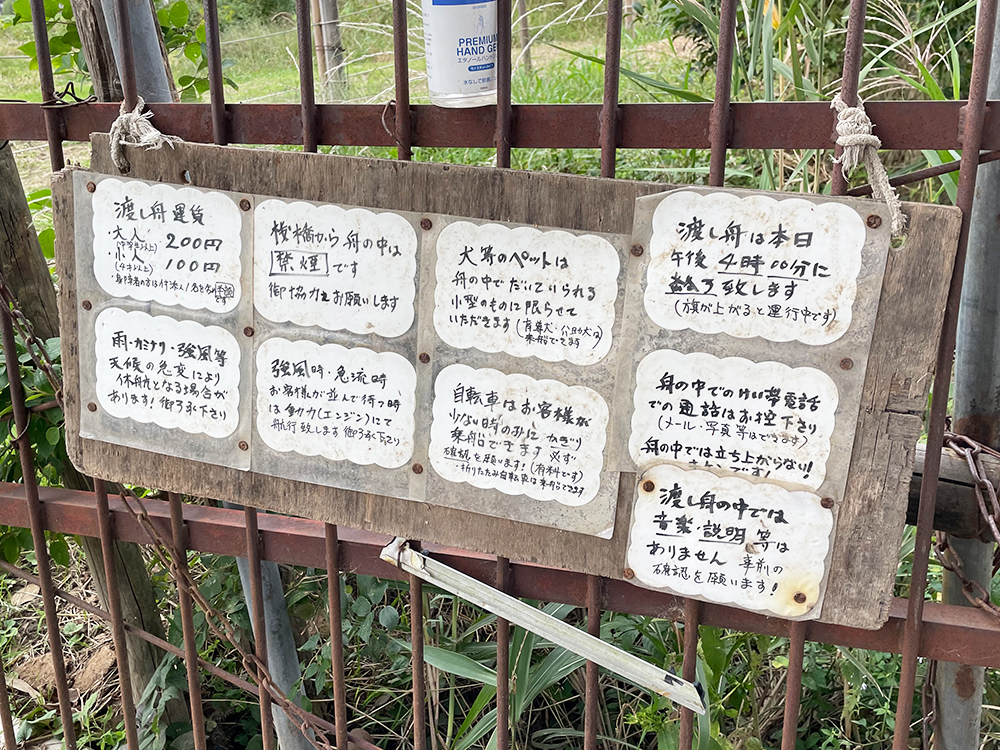 PREMIUM
HAND GEL
渡し舟運賃
大人 200円
(中学生以上)
小人 100円
(4才以上)
桟橋から舟の中は
禁煙です
御協力をお願いします
犬等のペットは
舟の中でだいていられる
小型のものに限らせて
いただきます (盲導犬・介助犬は
乗船できます
渡し舟は本日
午後4時00分に
終了致します
(旗が上がると運行中です)
雨・カミナリ・強風等
天候の急変により
休航となる場合が
あります!御了承下さい
強風時・急流時
お客様が並んで待つ時
は動力(エンジン)にて
航行致します御了承下さい
自転車はお客様が
少ない時のみにかぎり
乗船できます 必ず
確認を願います!(有料です)
・折りたたみ自転車は乗船できます
舟の中でのけい帯電話
での通話はお控下さい
(メール・写真等はできます)
舟の中では立ち上がらない!
渡し舟の中では
音楽・説明等は
ありません 事前の
確認を願います!